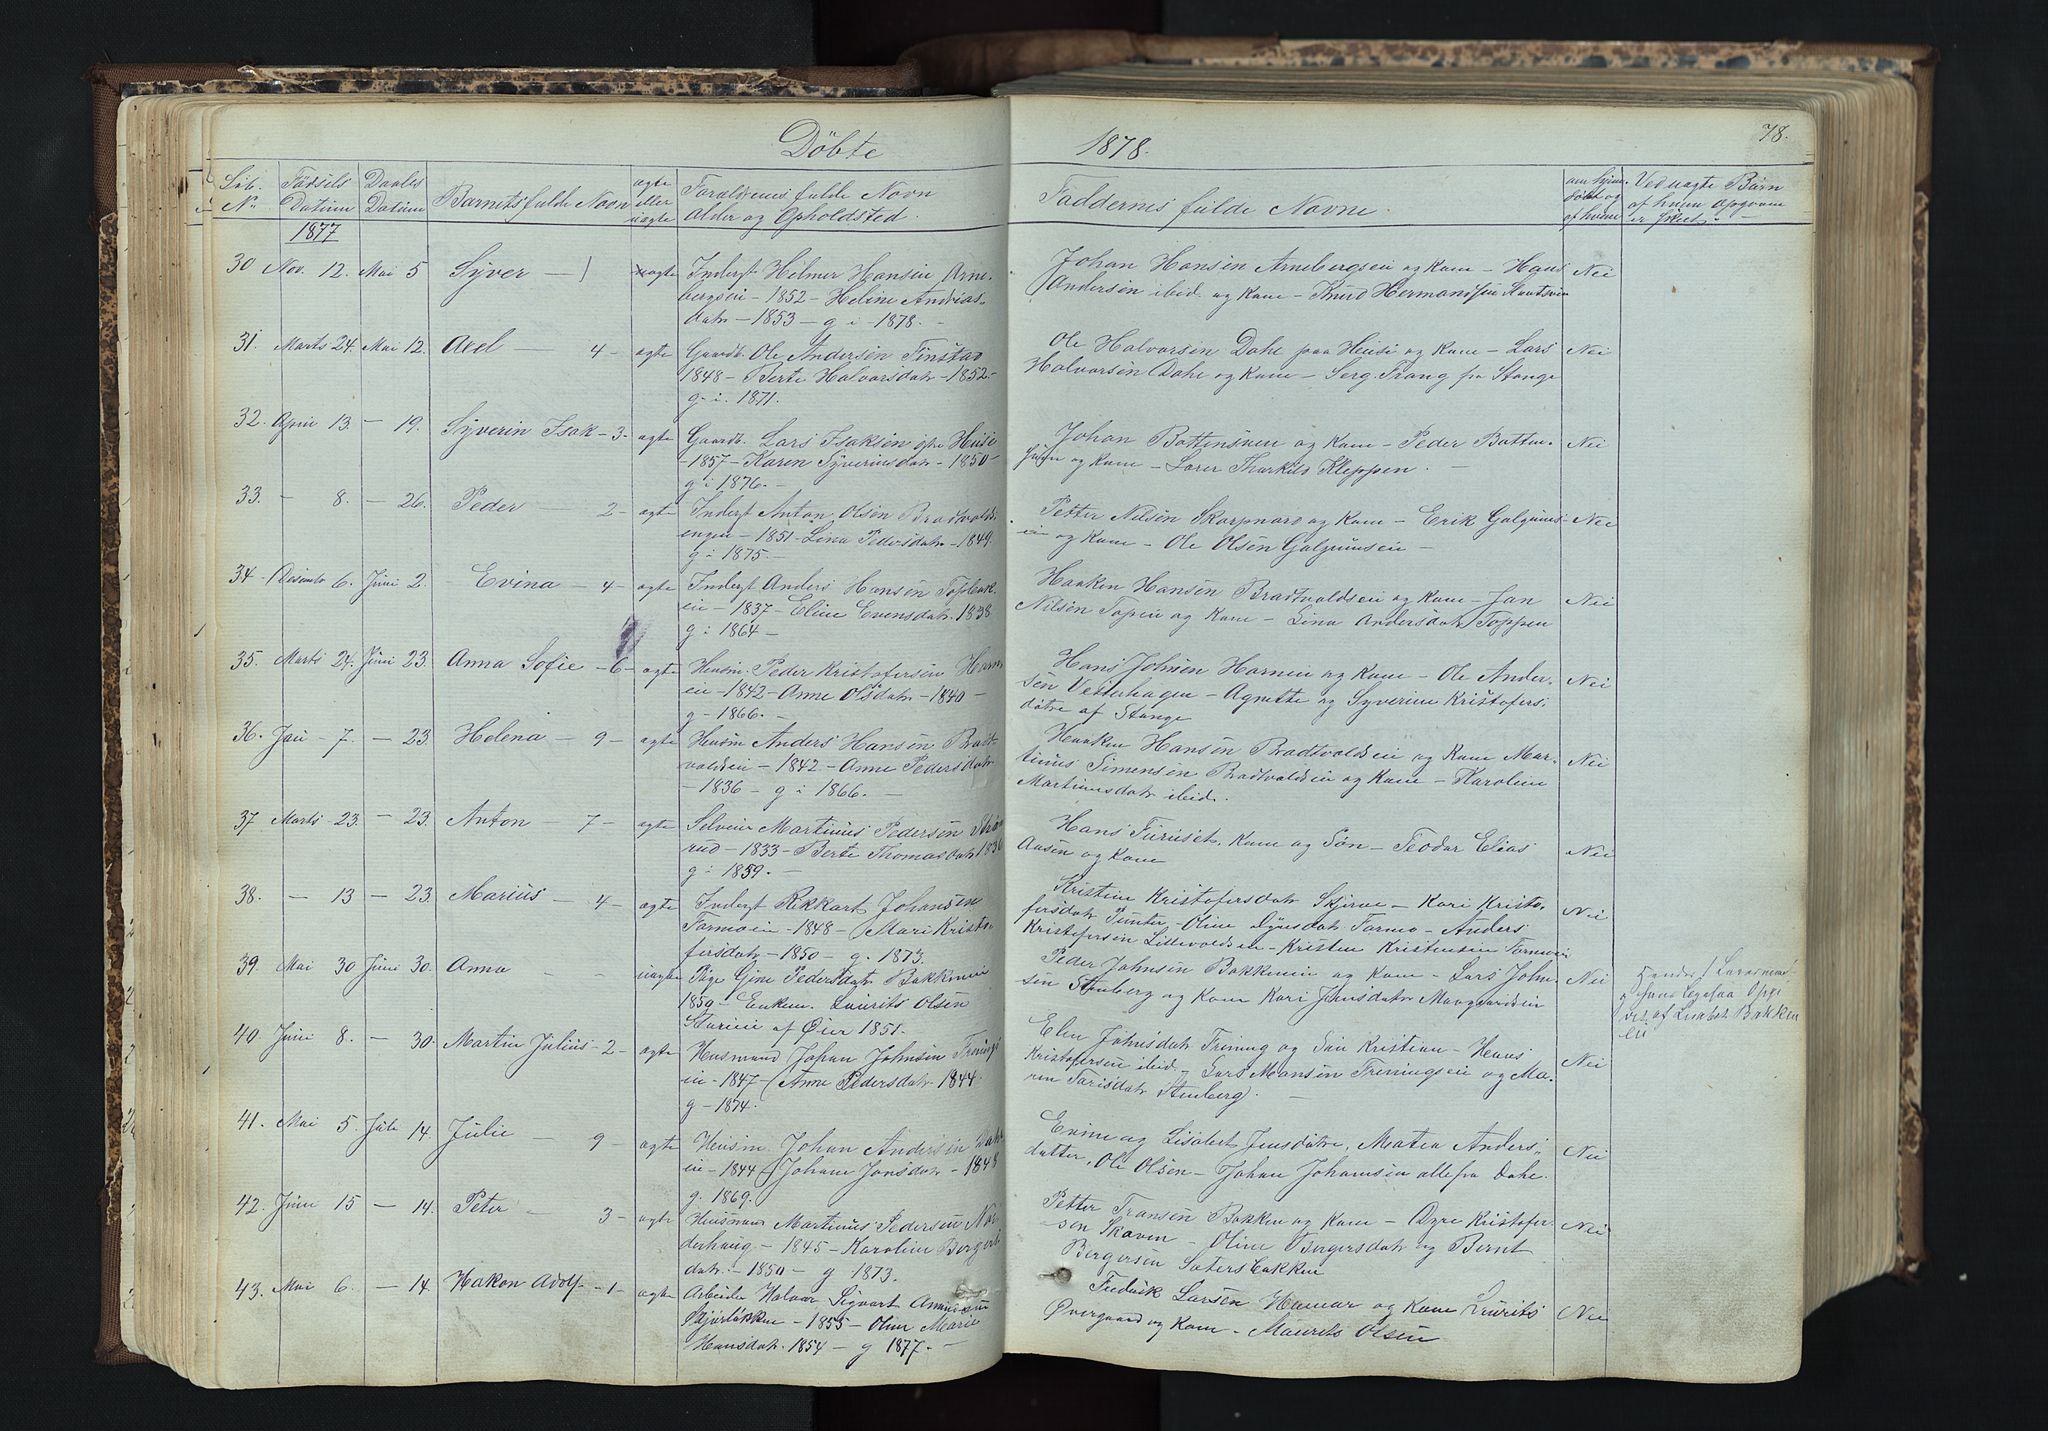 Döbte
1878.
78.
Löb. N. Födsels Datum Daabs Datum Barnets fulde Navn ægte eller uægte Forældrenes fulde Navn Alder og Opholdsted.
Faddernes fulde Navne. om hjemdöbt og af hvem Ved uægte Börn af hvem Opgaven er
1877
30 Nov. 12. Mai 5 Syver - 1 uægte Inderst Helmer Hansen Arne-
bergseie - 1852 - Heline Andreas-
datr - 1853 - g i - 1878. -
Johan Hansen Arnebergseie og Kone - Hans Nei
Andersen ibid. og Kone - Knud Hermandsen
31. Marts 24. Mai 12. Axel - 4 - ægte Gaardb. Ole Andersen Finstad
1848 - Berte Halvorsdatr - 1852 -
g. i. 1871.
Ole Halvorsen Dahe paa Heusi og Kone - Lars Nei
Halvorsen Dahe og Kone - Serg. Trang fra Stange
32. April 13. - 19. Syverin Isak - 3 - ægte Gaardb. Lars Isaksen Heusi
- 1857 - Karen Syverinsdatr - 1850 -
g i 1876. -
Johan Battensveen og Kone - Peder Batten- Nei
og Kone - Lærer Thorkild Kleppen. -
33. - 8. - 26. Peder - 2 - ægte Inderst Anton Olsen Bradtvolds-
engen - 1851 - Lina Pedersdatr - 1849.
g i 1875. -
Petter Nilsen Skarpnord og Kone - Erik Galgum- Nei
eie og Kone - Ole Olsen Galgumseie -
34 - Desembr 6. Juni 2. Evina - 4 - ægte Inderst Anders Hansen
eie - 1837 - Eline Evensdatr - 1838
g i 1864 -
Haaken Hansen Bradtvoldseie og Kone - Jan Nei
Nilsen Topeie og Kone - Lina Andersdatr Toppen
35. Marts 24. Juni 23. Anna Sofie - 6 - ægte Husm. Peder Kristofersen Horn
eie - 1842 - Anne Olsdatr - 1840 -
g - 1866. -
Hans Johnsen Horneie og Kone - Ole Ander- Nei
sen Vesterhagen - Agnette og Syverine Kristofers-
døtre af Stange
36. Jan - 7. - 23. Helena - 9 - ægte Husm Anders Hansen Bradt-
voldseie - 1842 - Anne Pedersdatr
- 1836 - g i 1866. -
Haaken Hansen Bradtvoldseie og Kone Mar- Nei
tinus Simensen Bradtvoldseie og Kone - Karoline
Martinusdatr ibid.
37 Marts 23. - 23. Anton - 7 - ægte Selveier Martinus Pedersen
rud - 1833 - Berte Thomasdatr 1836
g i 1859. -
Hans Furuset, Kone og Sön - Teodor Elias Nei
Aasen og Kone
38. - 13 - 23. Marius - 4 - ægte Inderst Rikkart Johansen
Formoeie - 1848 - Mari Kristo-
fersdatr - 1850 - g. 1873.
Kristine Kristofersdatr Skjerve - Kari Kristo- Nei
fersdatr - Oline Formo - Anders
Kristofersen Lillevoldseie - Kristen Kristensen Formoeie
39. Mai 30 Juni 30. Anna - - uægte Pige Gine Pedersdatr Bakkeneie
1850 - Enkem. Laurits Olsen
af Øier 1851. -
Peder Johnsen Bakkeneie og Kone - Lars John- Nei
sen Stenberg og Kone Kari Jensdatr
af Bakken
eie
40. Juni 8. - 30. Martin Julius - 2 - ægte Husmand Johan Johnsen Frenings
eie - 1847 - Anne Pedersdatr 1844
g - 1874.
Elen Johnsdatr Frening og Sön Kristian - Hans Nei
Kristofersen ibid - Lars Hansen Freningseie og Ma-
ren Stenberg.
41. Mai 5. Juli 14. Julie - 9 - ægte Husm. Johan Andersen Dahe
eie - 1844 Johane Jonsdatr - 1848
g. 1869.
Evine og Lisabet Jensdøtre, Matea Anders- Nei
datter, Ole Olsen - Johan Johansen alle fra Dahe.
42. Juni 15 - 14. Peter - 3 - ægte Husmand Martinus Pedersen Nor-
derhaug - 1845 - Karoline Bergers-
datr. - 1850 - g 1873.
Petter Fransen Bakken og Kone - Kristofer- Nei
sen Skaven - Oline Bergersdatr og Bernt
Bergersen Sætersbakken
43. Mai 6. - 14. Hakon Adolf - 1 - ægte Arbeider Halvor Sigvart Amundsen
Skjerbakken - 1855 - Oline Marie
Hansdatr. 1854 - g 1877. -
Fredrik Larsen Hamar og Kone Laurits Nei
Övergaard og Kone - Maurits Olsen